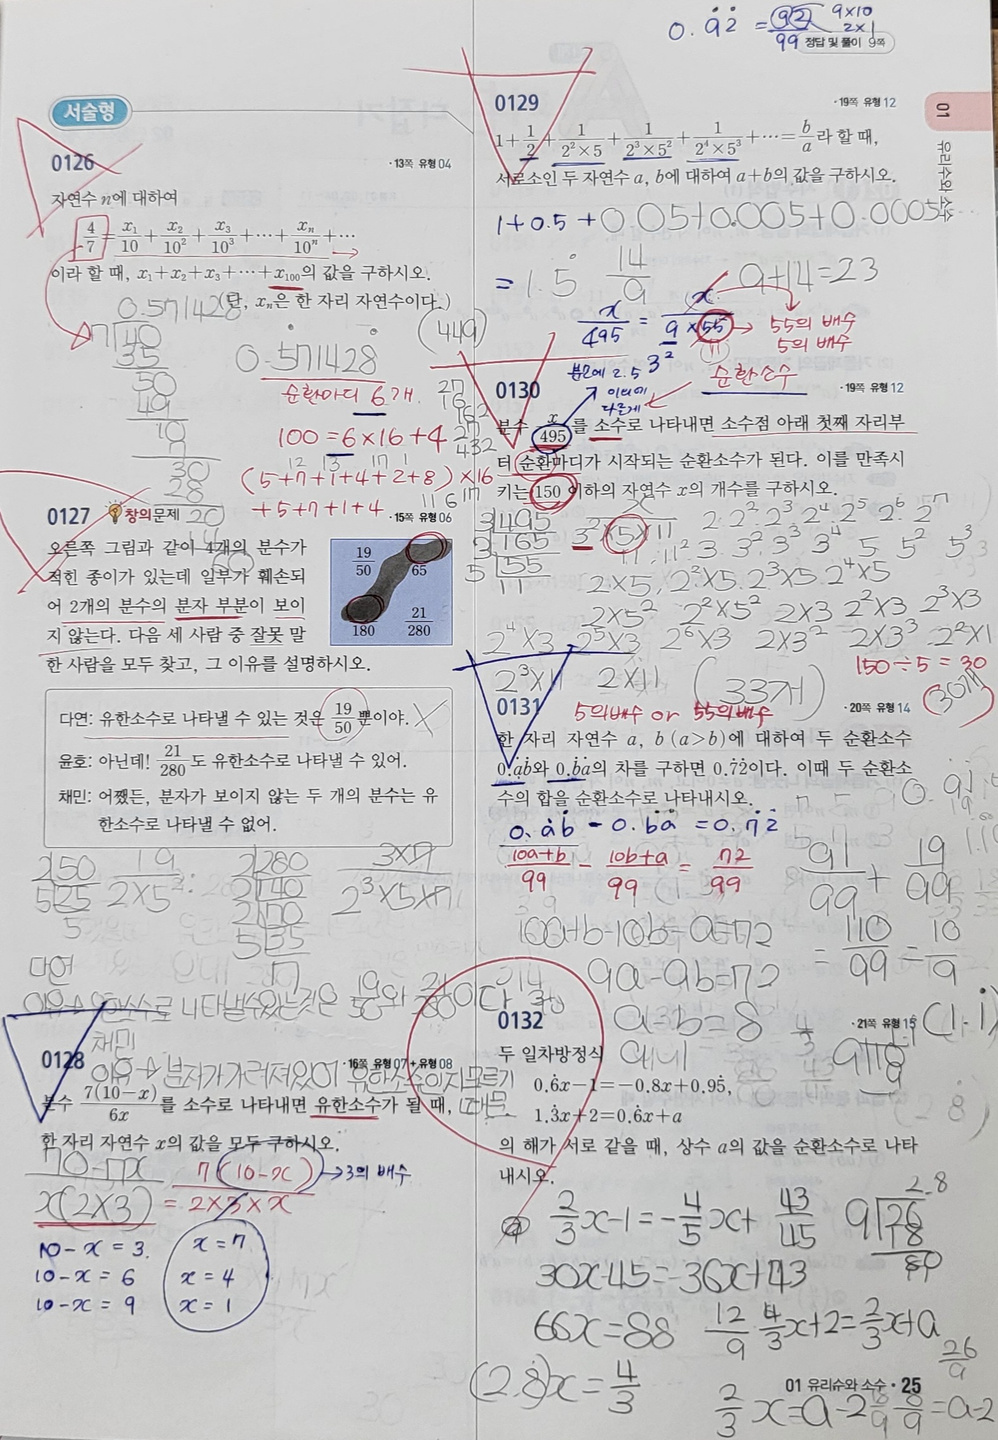 0.9̇2̇ = 92/99
9×10
2×1
정답 및 풀이 9쪽
01
유리수와 소수
서술형
0126
·13쪽 유형 04
자연수 n에 대하여
4/7 = x₁/10 + x₂/10² + x₃/10³ + ⋯ + xₙ/10ⁿ + ⋯
이라 할 때, x₁+x₂+x₃+⋯+x₁₀₀의 값을 구하시오.
(단, xₙ은 한 자리 자연수이다.)
0.571428
7 40
35
50
49
10
7
30
28
20
0.5̇71428̇
(449)
순환마디 6개.
100 = 6×16+4
(5+7+1+4+2+8)×16
+5+7+1+4
0127 창의문제
·15쪽 유형 06
오른쪽 그림과 같이 4개의 분수가
적힌 종이가 있는데 일부가 훼손되
어 2개의 분수의 분자 부분이 보이
지 않는다. 다음 세 사람 중 잘못 말
한 사람을 모두 찾고, 그 이유를 설명하시오.
19/50
65
180
21/280
다연: 유한소수로 나타낼 수 있는 것은 19/50 뿐이야.
윤호: 아닌데! 21/280도 유한소수로 나타낼 수 있어.
채민: 어쨌든, 분자가 보이지 않는 두 개의 분수는 유
한소수로 나타낼 수 없어.
2 50
5 25
5
19/2×5²
2 280
2 140
2 70
5 35
7
3×7/2³×5×7
다연
이유→유한소수로 나타낼수있는것은 19/50와 21/280이다
채민
이유→분자가가려져있어 유한소수인지모르기
때문
0128
·16쪽 유형 07+유형 08
분수 7(10-x)/6x 를 소수로 나타내면 유한소수가 될 때,
한 자리 자연수 x의 값을 모두 구하시오.
70-7x/x(2×3) = 7(10-x)/2×3×x →3의 배수
10-x = 3.
10-x = 6
10-x = 9
x=7
x=4
x=1
0129
·19쪽 유형 12
1+1/2+1/2²×5+1/2³×5²+1/2⁴×5³+⋯=b/a라 할 때,
서로소인 두 자연수 a, b에 대하여 a+b의 값을 구하시오.
1+0.5+0.05+0.005+0.0005
= 1.5̇ 14/9 9+14=23
x/495 = x/9×55 → 55의 배수
5의 배수
(11)
3²
분모에 2.5
이외에
다른게
순환소수
0130
·19쪽 유형 12
분수 x/495를 소수로 나타내면 소수점 아래 첫째 자리부
터 순환마디가 시작되는 순환소수가 된다. 이를 만족시
키는 150 이하의 자연수 x의 개수를 구하시오.
3 495
3 165
5 55
11
x/3²×5×11
2·2²·2³·2⁴ 2⁵ 2⁶ 2⁷
11, 11² 3 3² 3³ 3⁴ 5 5² 5³
2×5, 2²×5 2³×5 2⁴×5
2×5² 2²×5² 2×3 2²×3 2³×3
2⁴×3 2⁵×3 2⁶×3 2×3² 2×3³
2³×11 2×11
(33개)
150÷5=30
(30개)
5의배수 or 55의배수
0131
·20쪽 유형 14
한 자리 자연수 a, b (a>b)에 대하여 두 순환소수
0.ȧḃ와 0.ḃȧ의 차를 구하면 0.7̇2̇이다. 이때 두 순환소
수의 합을 순환소수로 나타내시오.
0.ȧḃ - 0.ḃȧ = 0.7̇2̇
10a+b/99 - 10b+a/99 = 72/99
91/99 + 19/99
10a+b-10b-a=72
= 110/99 = 10/9
9a-9b=72
a-b=8
(1.1̇)
0132
·21쪽 유형 15
두 일차방정식
0.6̇x-1=-0.8x+0.95̇,
1.3̇x+2=0.6̇x+a
의 해가 서로 같을 때, 상수 a의 값을 순환소수로 나타
내시오.
2/3x-1=-4/5x+43/45
30x-45=-36x+43
66x=88
x=4/3
(2.8̇)
2.8
9 26
18
80
12/9 4/3x+2=2/3x+a
26/9
2/3x=a-2 8/9=a-2
01 유리수와 소수 · 25